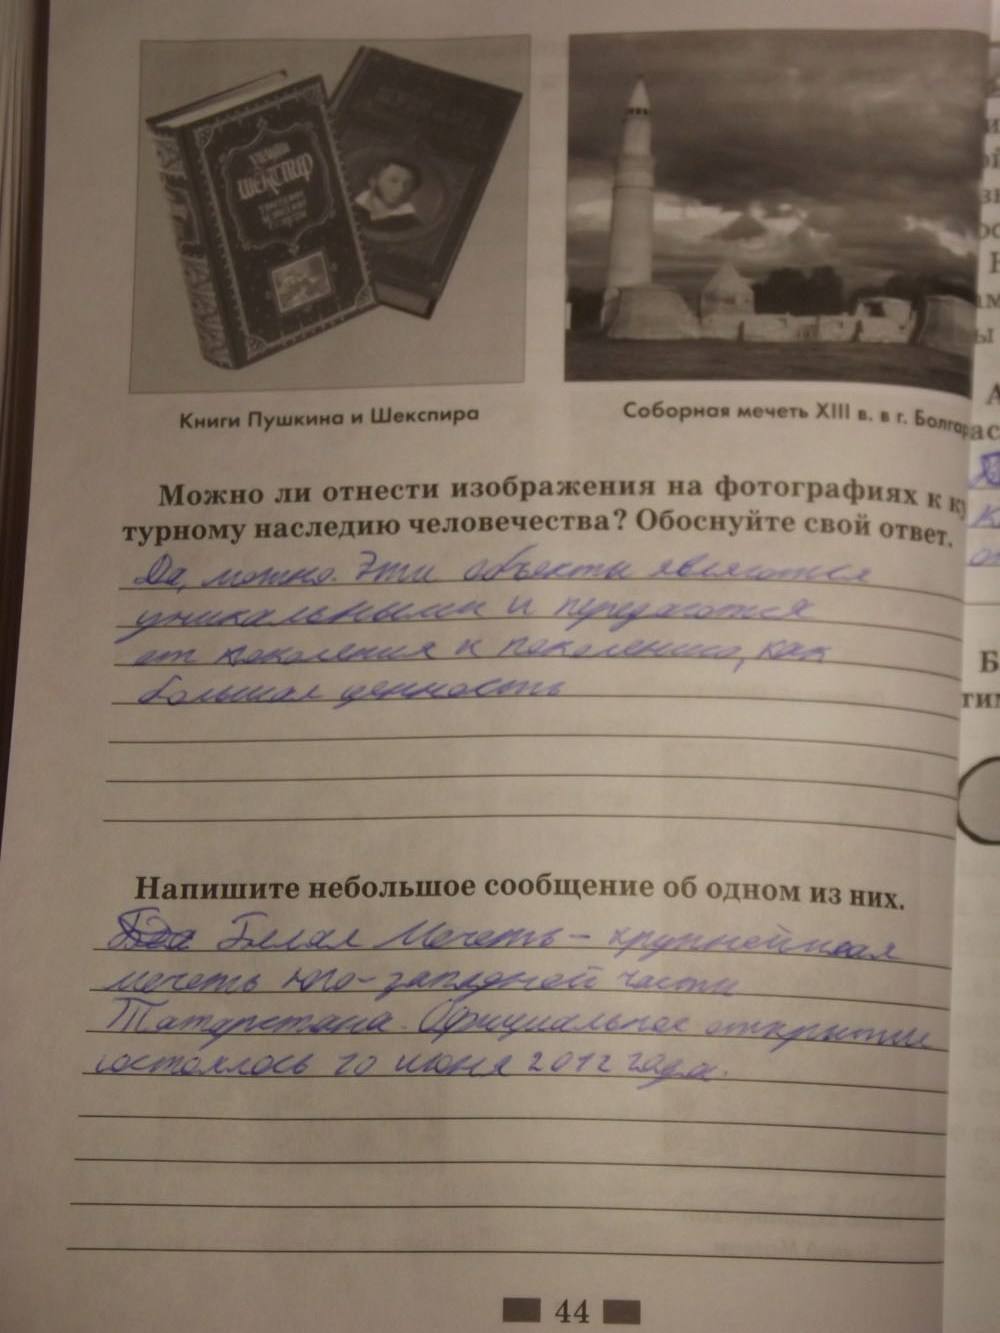 ШЕКСПИР
Книги Пушкина и Шекспира
Соборная мечеть XIII в. в г. Болгар
Можно ли отнести изображения на фотографиях к ку
турному наследию человечества? Обоснуйте свой ответ.
Да, можно. Эти объекты являются
уникальными и передаются
от поколения к поколению, как
большая ценность
Напишите небольшое сообщение об одном из них.
Белая Мечеть – крупнейшая
мечеть юго-западной части
Татарстана. Официальное открытие
состоялось 10 июня 2012 года.
44